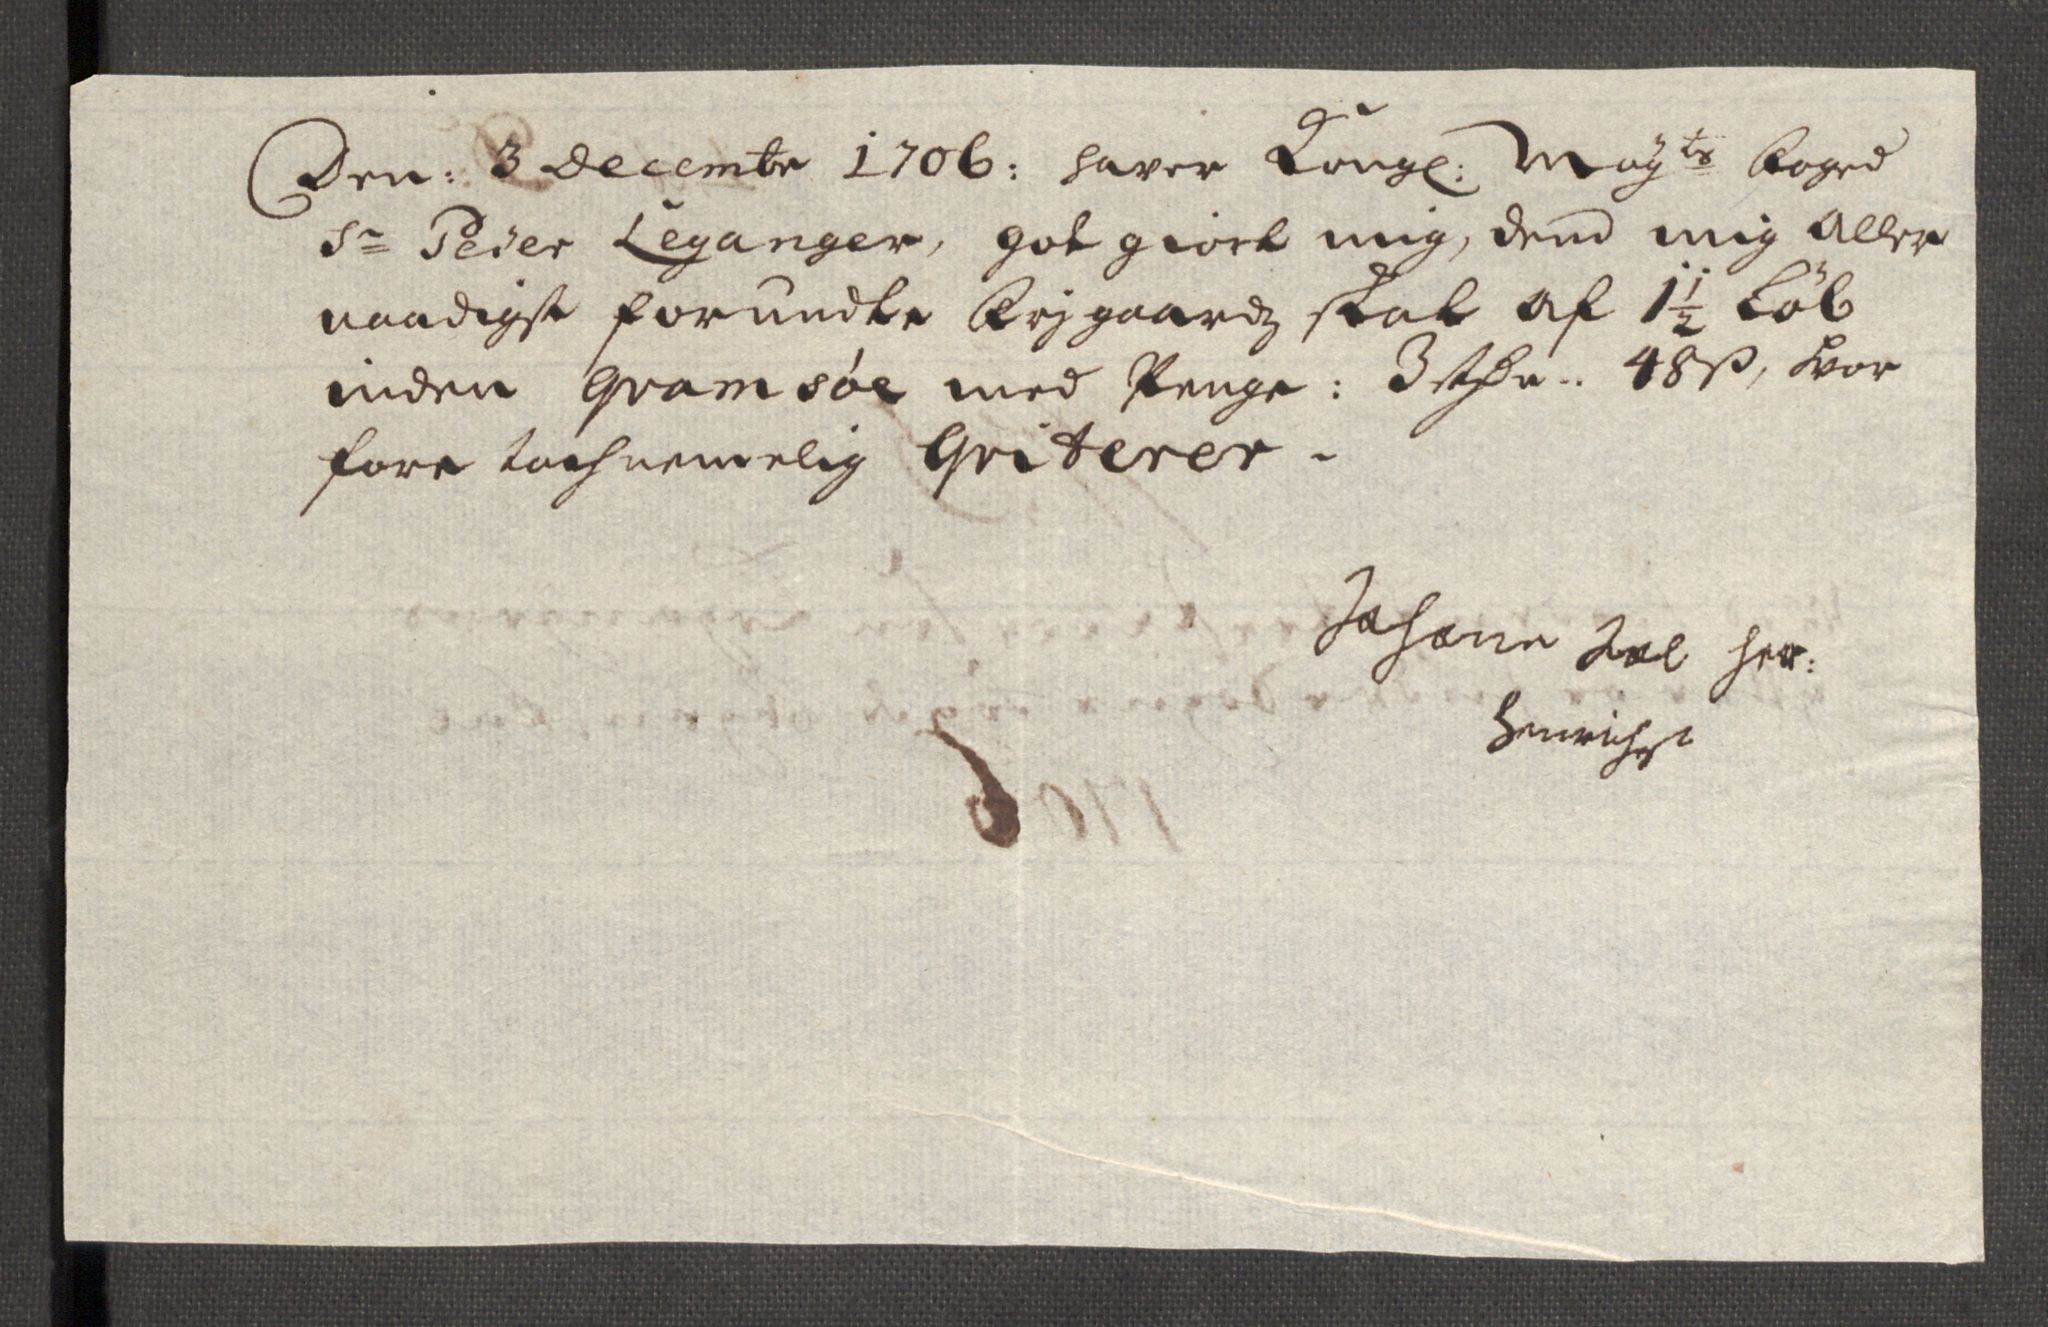 Den: 3 Decembr 1706: haver Kongl: Mayts Foged
Sr Peder Leganger, got giort mig, dend mig aller
naadigst forundte frj gaardz skat af 1 1/2 Løb
inden Qvamsøe med Penge: 3 Rdr.. 48 ß, hvor
fore tachnemelig Qviterer -
Johane Sal her:
Henrichs